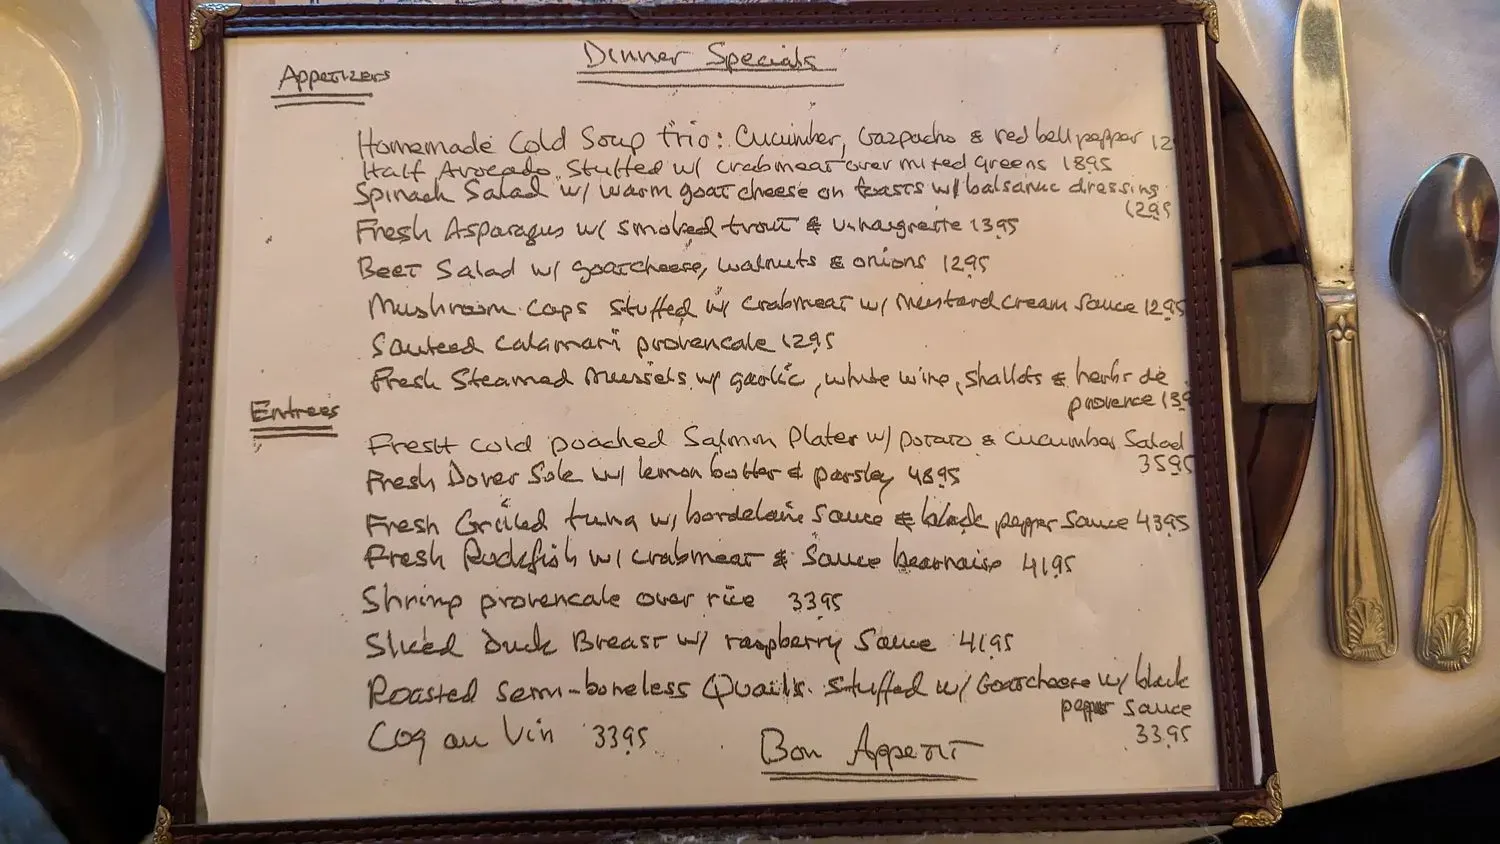 Dinner Specials
Appetizers
Homemade Cold Soup trio: Cucumber, Gazpacho & red bell pepper 12
Half Avocado Stuffed w/ crabmeat over mixed Greens 1895
Spinach Salad w/ warm goat cheese on toasts w/ balsamic dressing
1295
Fresh Asparagus w/ smoked trout & vinaigrette 1395
Beet Salad w/ goatcheese, walnuts & onions 1295
Mushroom Caps stuffed w/ crabmeat w/ Mustard cream Sauce 1295
Sauteed Calamari provencale 1295
Fresh Steamed Mussels w/ garlic, white wine, shallots & herbs de
provence 139
Entrees
Fresh cold poached Salmon Plater w/ potato & cucumber Salad
3595
Fresh Dover Sole w/ lemon butter & parsley 4895
Fresh Grilled tuna w/ bordelaise sauce & black pepper Sauce 4395
Fresh Rockfish w/ crabmeat & Sauce bearnaise 4195
Shrimp provencale over rice 3395
Sliced Duck Breast w/ raspberry Sauce 4195
Roasted semi-boneless Quails stuffed w/ Goatcheese w/ black
pepper sauce
3395
Coq au Vin 3395
Bon Appetit